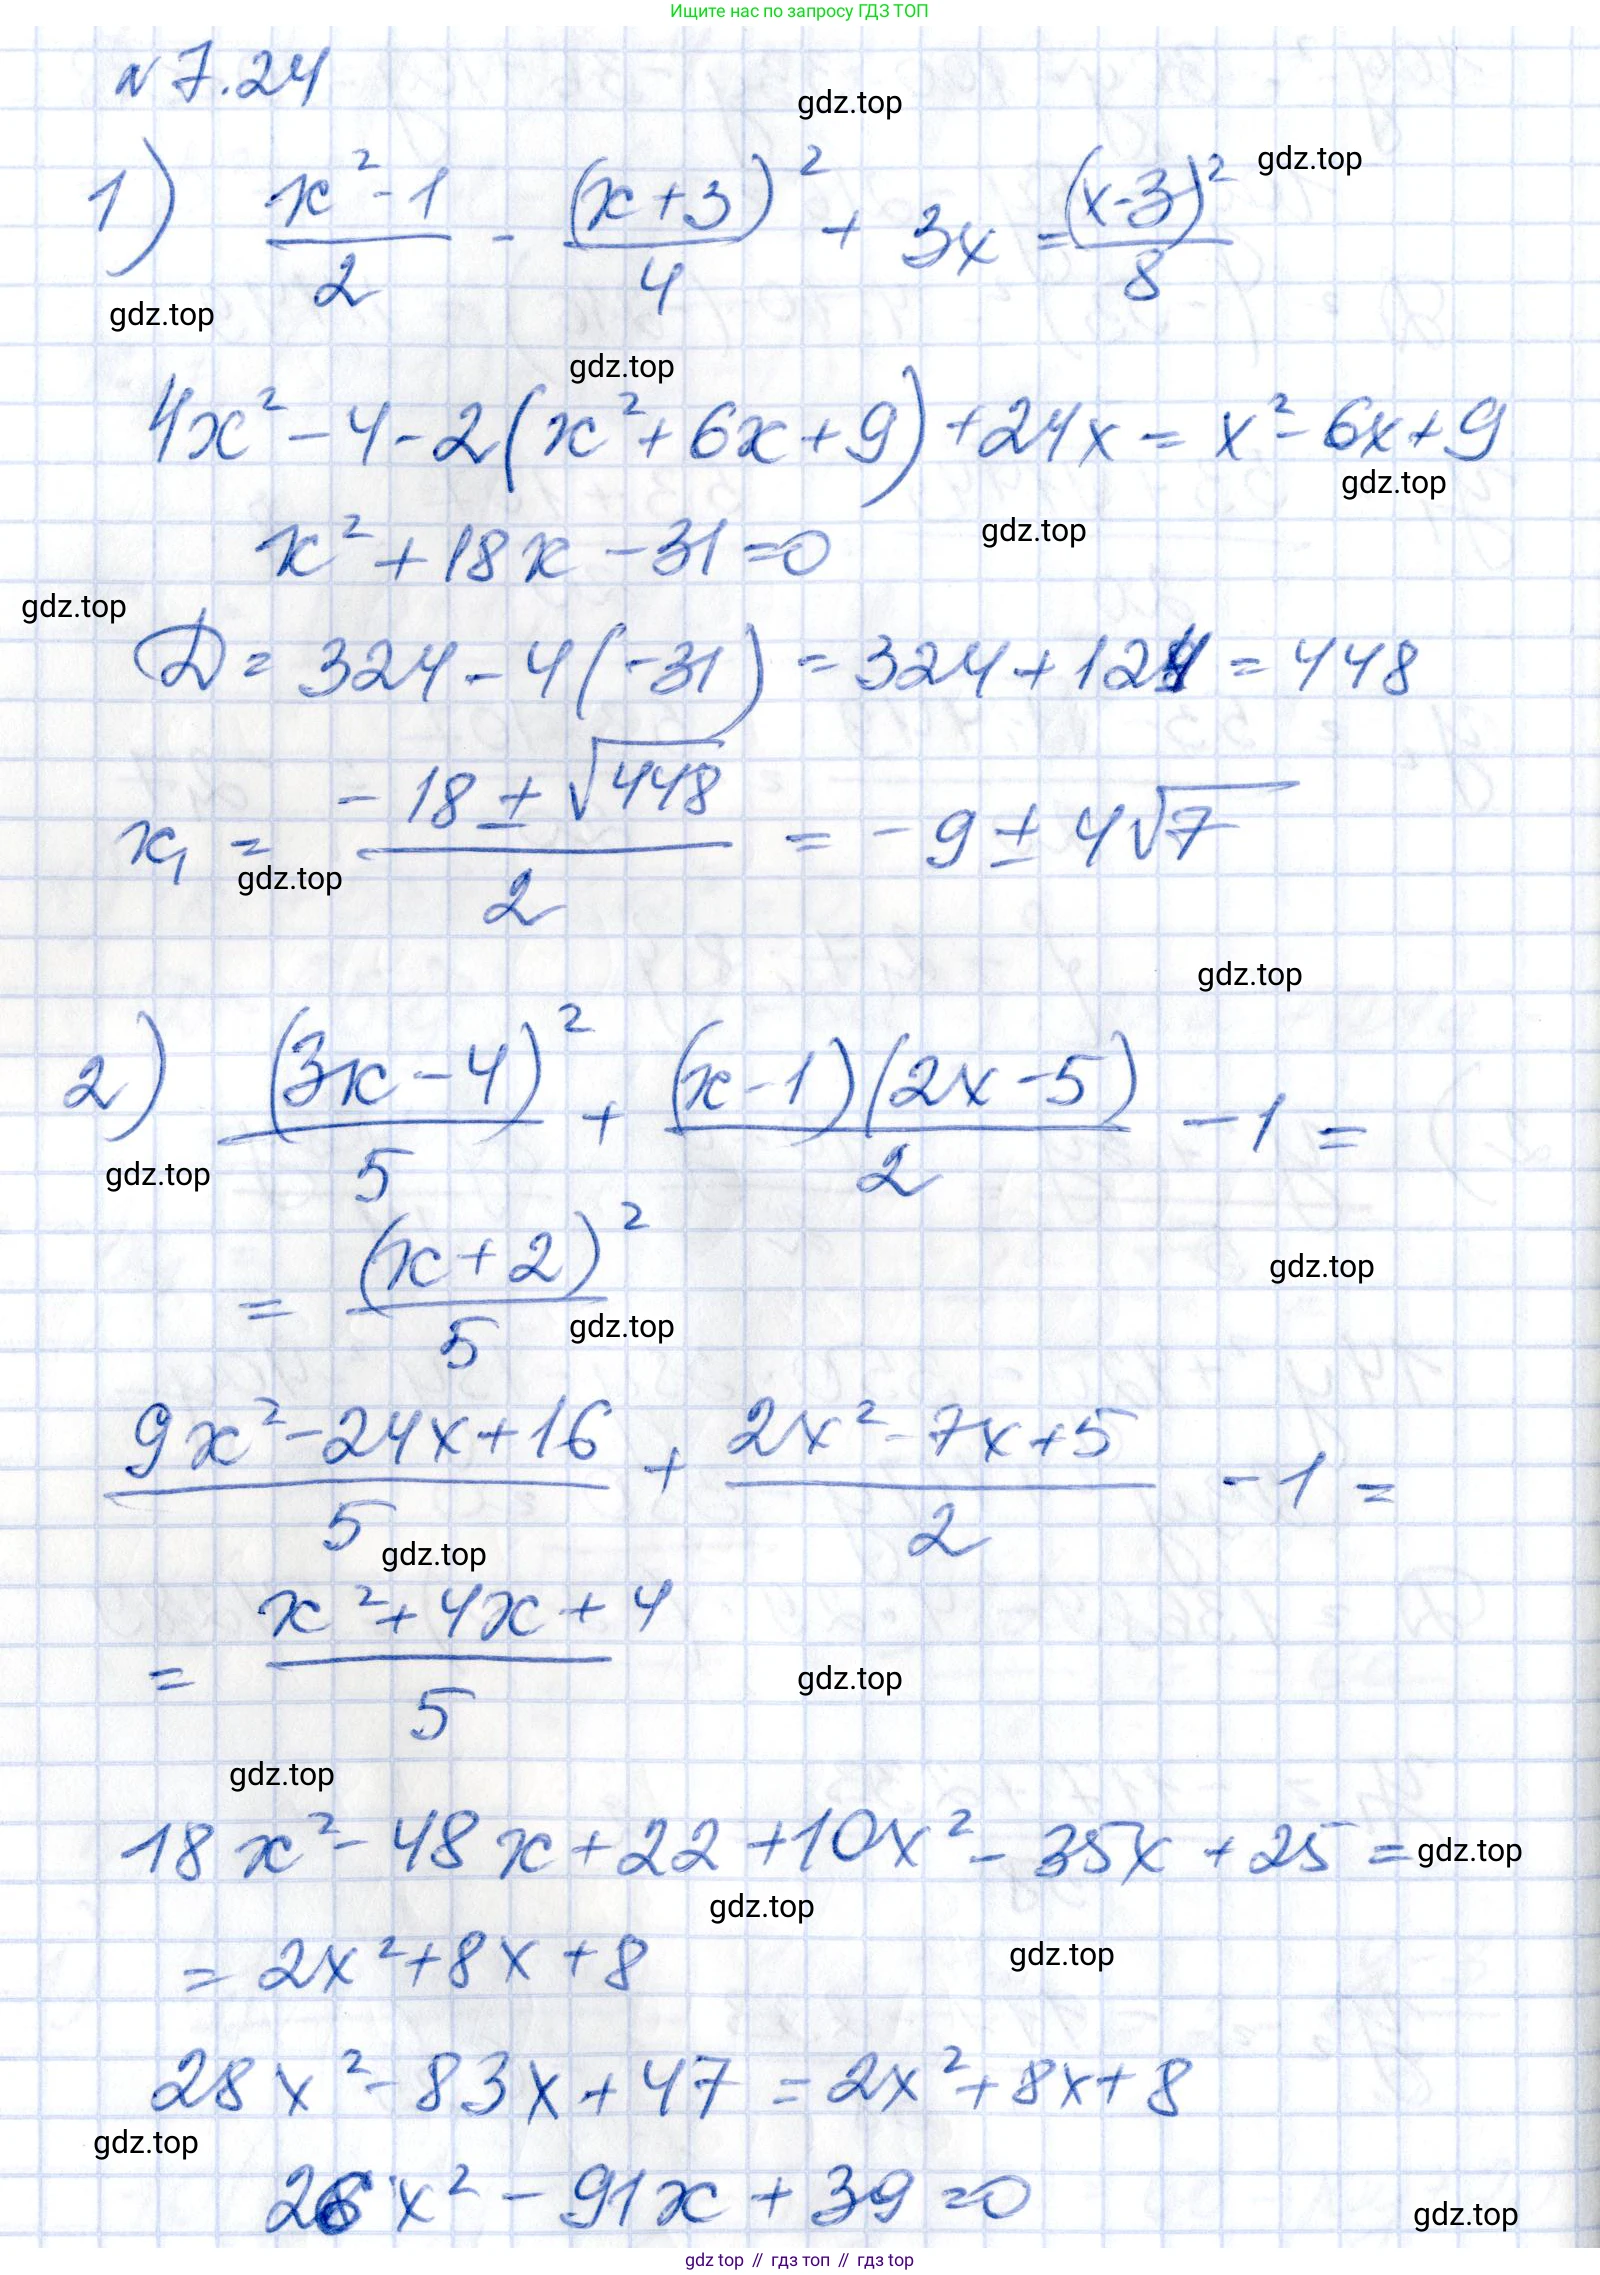 Ищите нас по запросу ГДЗ ТОП
№7.24
gdz.top
1) (x²-1)/2 - (x+3)²/4 + 3x = (x-3)²/8
gdz.top
gdz.top
gdz.top
4x² - 4 - 2(x² + 6x + 9) + 24x = x² - 6x + 9
gdz.top
gdz.top
x² + 18x - 31 = 0
gdz.top
D = 324 - 4(-31) = 324 + 124 = 448
x₁ = (-18 ± √448)/2 = -9 ± 4√7
gdz.top
gdz.top
2) (3x-4)²/5 + (x-1)(2x-5)/2 - 1 =
gdz.top
= (x+2)²/5
gdz.top
gdz.top
(9x² - 24x + 16)/5 + (2x² - 7x + 5)/2 - 1 =
gdz.top
= (x² + 4x + 4)/5
gdz.top
gdz.top
18x² - 48x + 22 + 10x² - 35x + 25 =
gdz.top
gdz.top
= 2x² + 8x + 8
gdz.top
28x² - 83x + 47 = 2x² + 8x + 8
gdz.top
26x² - 91x + 39 = 0
gdz.top
gdz top // гдз топ // gdz top